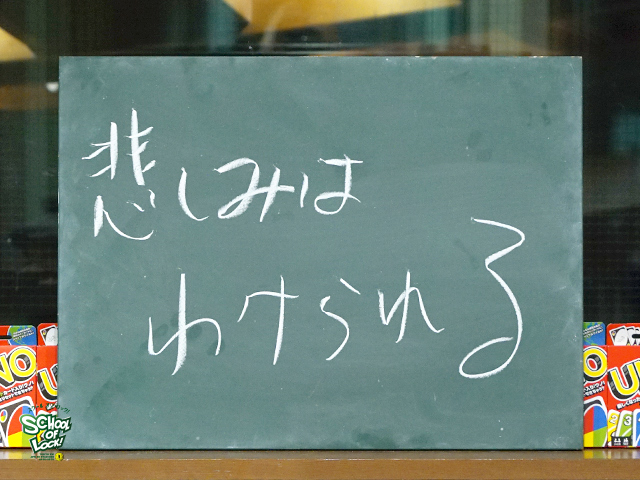 悲しみは
わけられる
UNO
UN
SCHOOL
OF
LOCK!